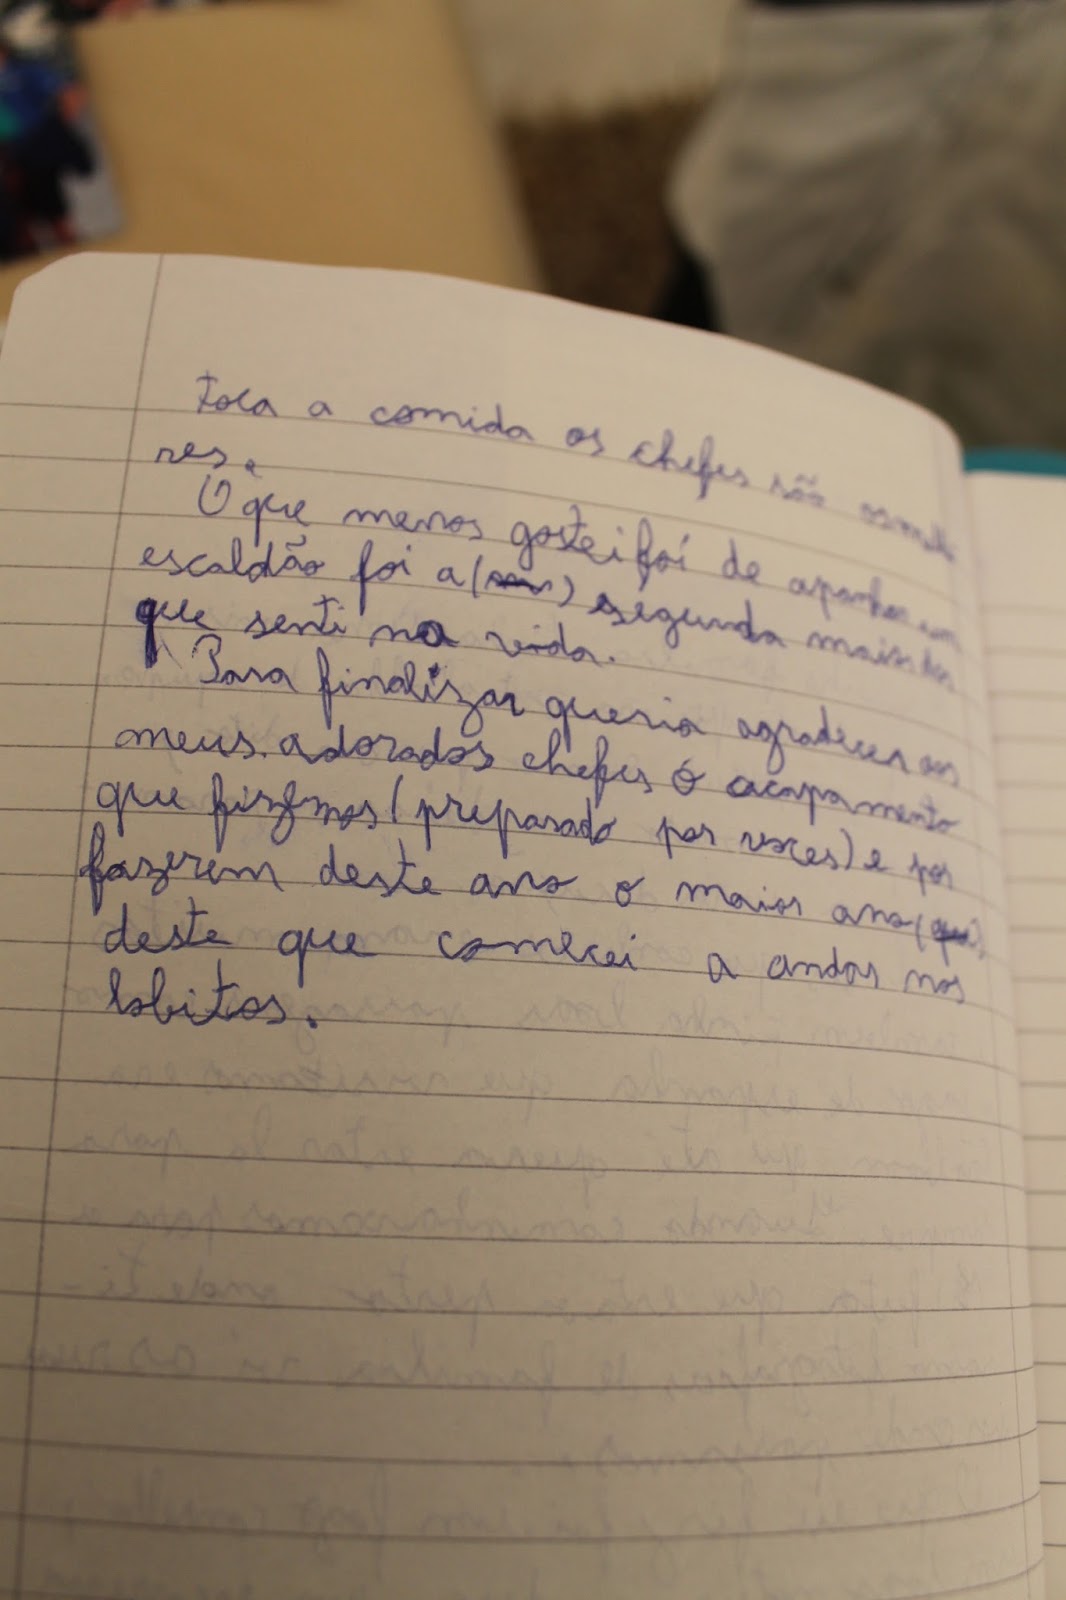 Toca a comida os chefes são osmelho
res.
O que menos gostei foi de apanhar um
escaldão foi a ( ) segunda mais
que senti na vida.
Para finalizar queria agradecer aos
meus adorados chefes o acapamento
que fizemos (preparado por voces) e por
fazerem deste ano o maior ano (que)
deste que comecei a andar nos
lobitos.